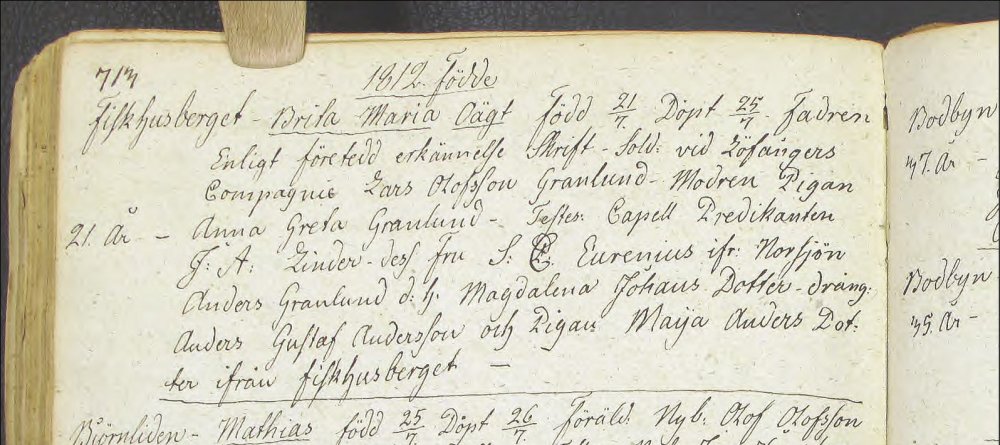 713
1812. Födde
Fiskhusberget - Brita Maria Oägt född 21/7. Döpt 25/7. Fadren
Enligt företedd erkännelse Skrift - Sold: vid Löfångers
Compagnie Lars Olofsson Granlund - Modren Pigan
21. År - Anna Greta Granlund - Testes: Capell Predikanten
J: A: Linder - dess fru S: C: Eurenius ifr: Norsjön
Anders Granlund d: h. Magdalena Johans Dotter - dräng:
Anders Gustaf Andersson och Pigan Maija Anders Dot-
ter ifrån fiskhusberget -
Björnliden - Mathias född 25/7 Döpt 26/7. föräld: Nyb: Olof Olofsson
Bodbyn
37. År -
Bodbyn
35. År -